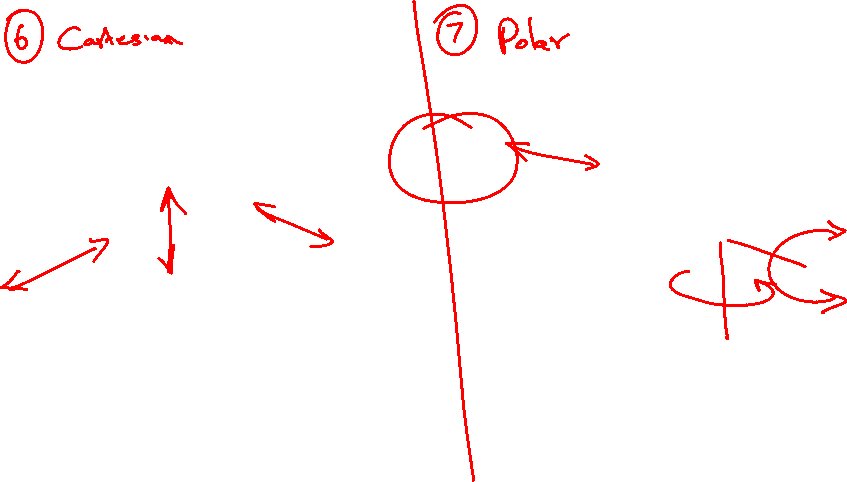 6 Cartesian
7 Polar